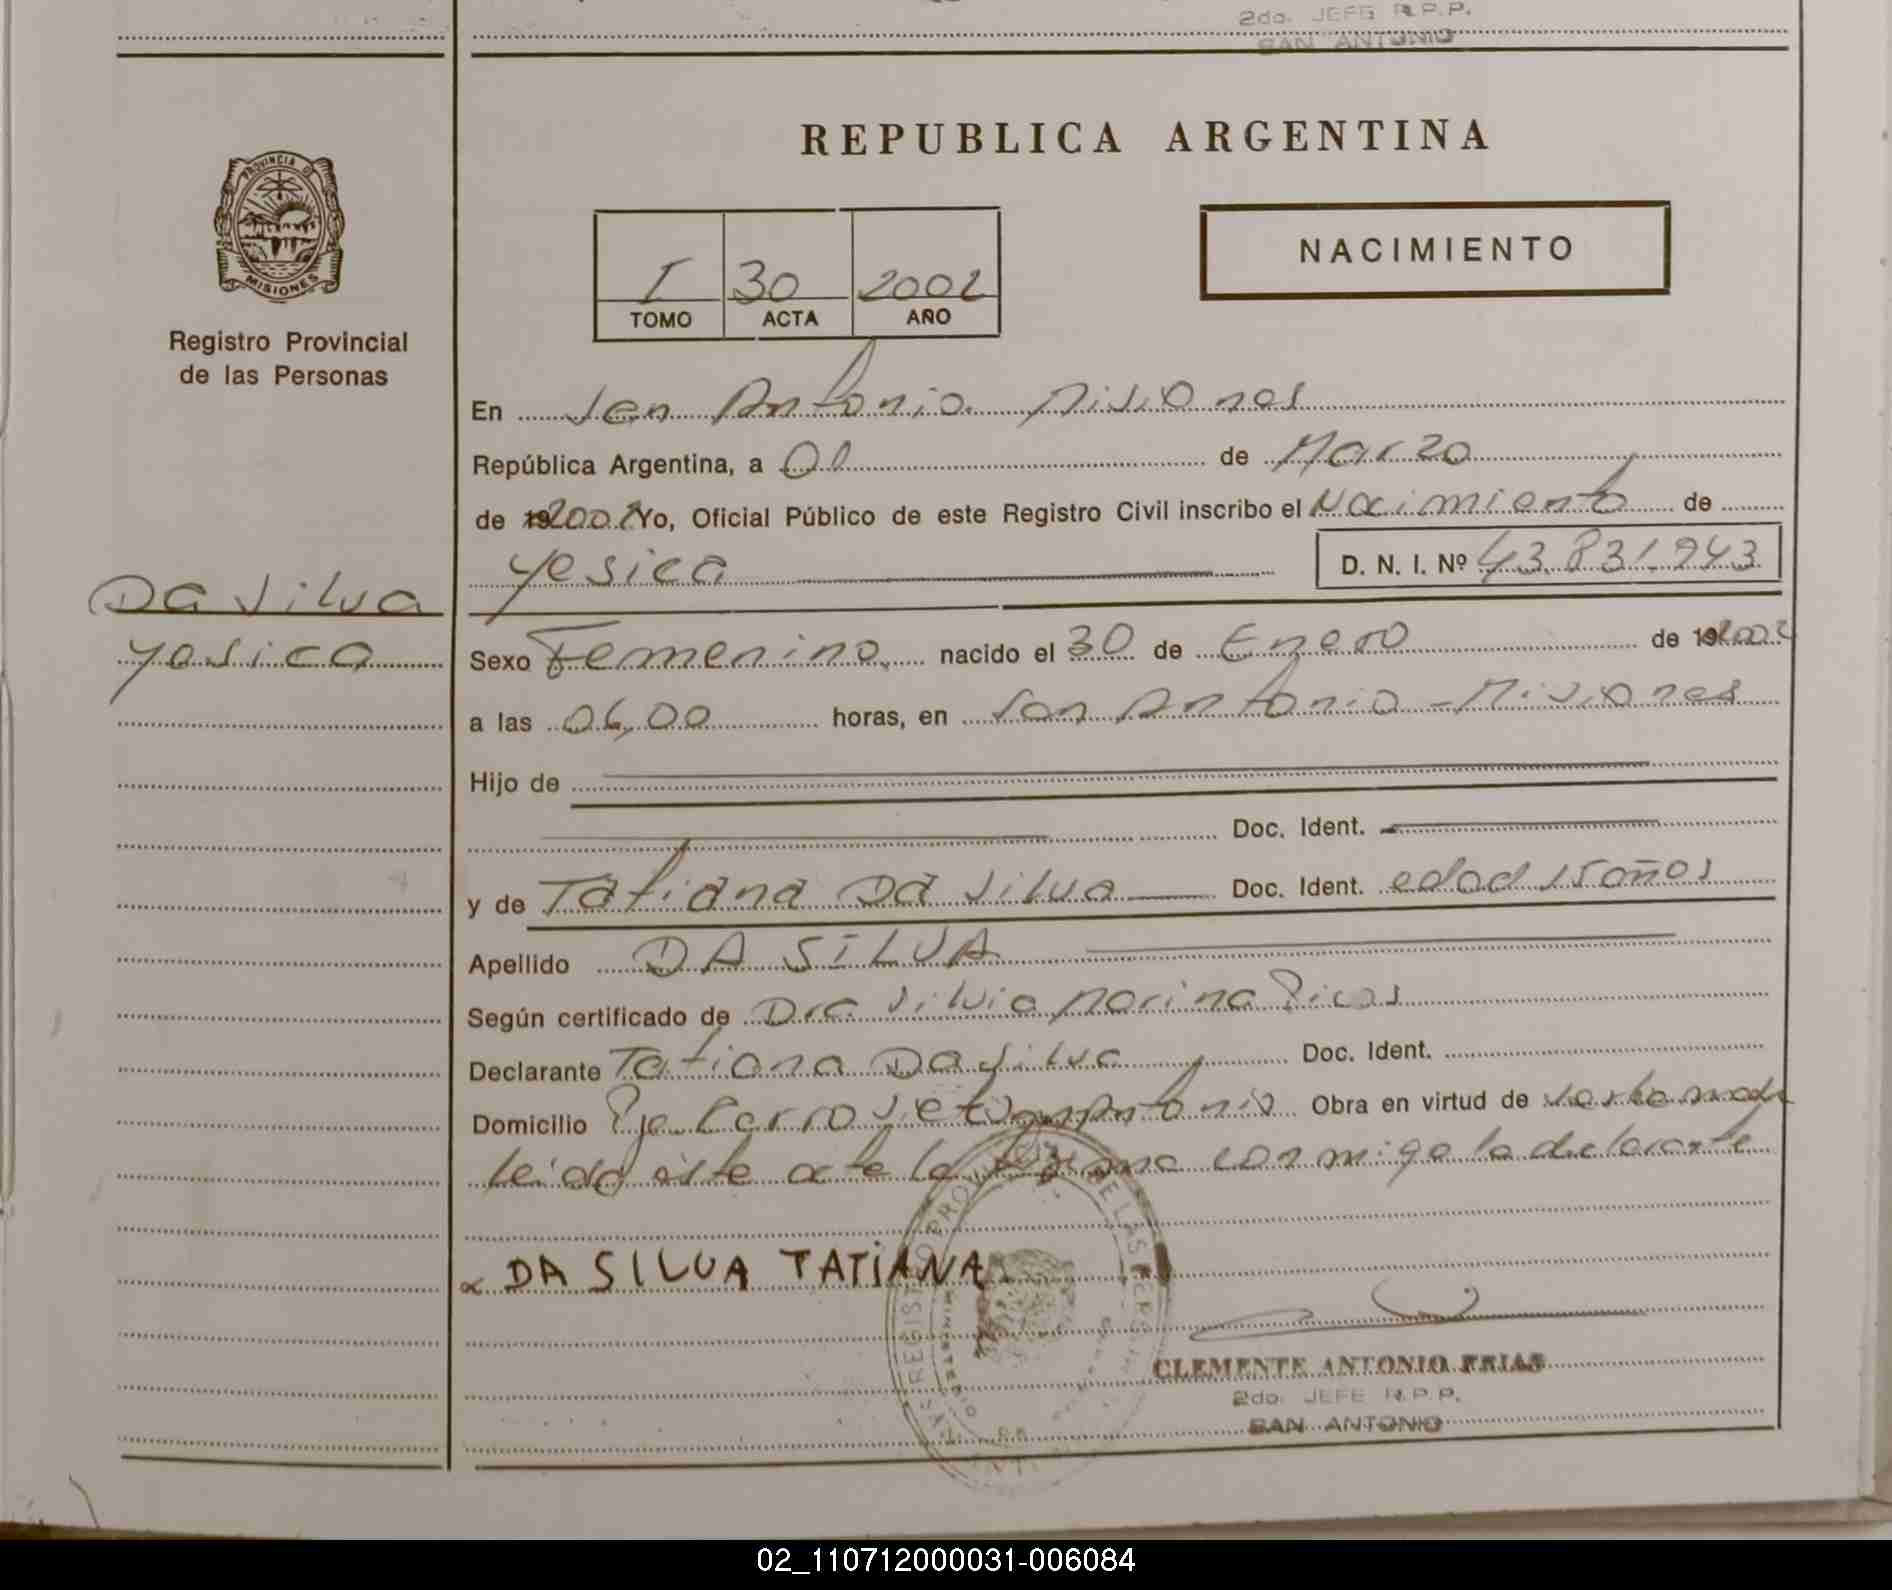 2do. JEFE R.P.P.
SAN ANTONIO
REPUBLICA ARGENTINA
PROVINCIA DE
MISIONES
Registro Provincial
de las Personas
I 30 2002
TOMO ACTA AÑO
NACIMIENTO
En San Antonio Misiones
República Argentina, a 01 de Marzo
de 192002 Yo, Oficial Público de este Registro Civil inscribo el Nacimiento de
Yesica D. N. I. Nº 43.831.943
Da Silva
Yesica
Sexo Femenino nacido el 30 de Enero de 192002
a las 06,00 horas, en San Antonio - Misiones
Hijo de
Doc. Ident.
y de Tatiana Da Silva Doc. Ident. edad 15 años
Apellido DA SILVA
Según certificado de Dra. Silvia Marina
Declarante Tatiana Da Silva Doc. Ident.
Domicilio Pje Cerro Antonio Obra en virtud de
leida este acta la firma conmigo la declarante
DA SILVA TATIANA
CLEMENTE ANTONIO FRIAS
2do. JEFE R.P.P.
SAN ANTONIO
02_110712000031-006084